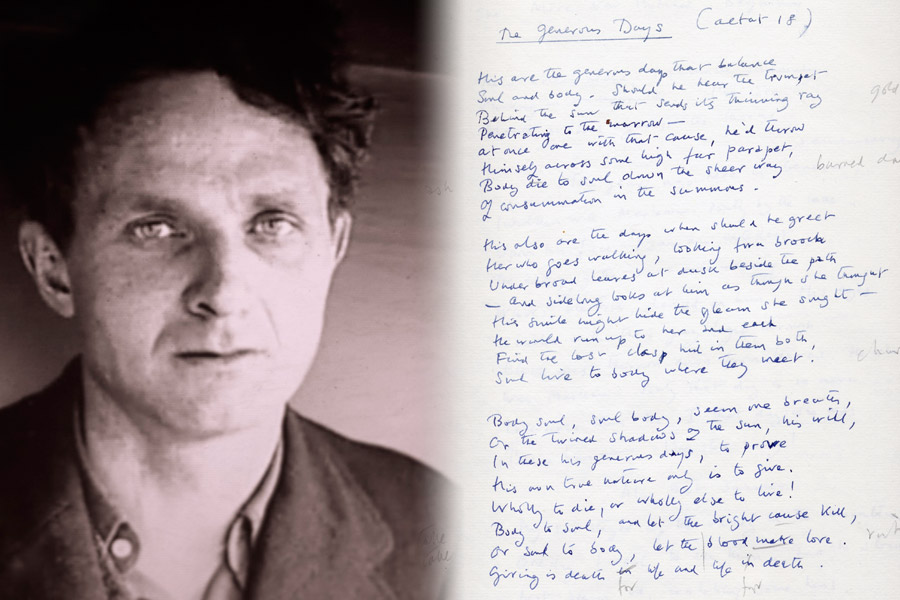 The Generous Days (aetat 18)
His are the generous days that balance
Soul and body. Should he hear the trumpet
Behind the sun that sends its thinning ray
Penetrating to the marrow —
At once one with that cause, he'd throw
Himself across some high far parapet,
Body die to soul down the sheer way
Of consummation in the summons.
His also are the days when should he greet
Her who goes walking, looking for a brooch
Under broad leaves at dusk beside the path
— And sidelong looks at him as though she thought
His smile might hide the gleam she sought —
He would run up to her and each
Find the lost clasp hid in them both,
Soul live to body where they meet.
Body soul, soul body, seem one breath,
Or the twined shadows of the sun, his will,
In these his generous days, to prove
His own true nature only is to give.
Wholly to die, or wholly else to live!
Body to soul, and let the bright cause kill,
Or soul to body, let the blood make love.
Giving is death in life and life in death.
for for
gold
burned